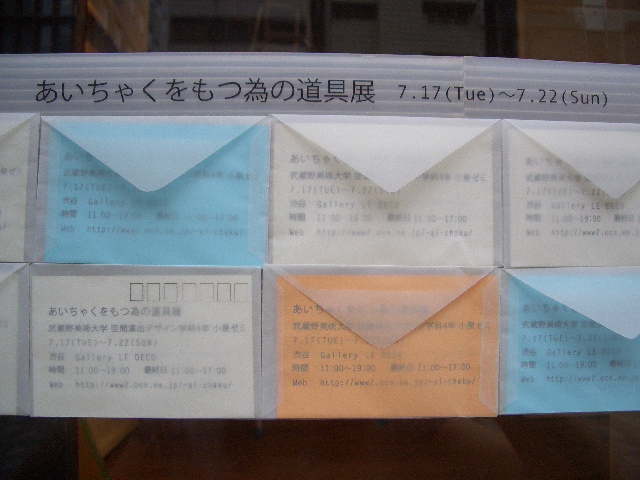 あいちゃくをもつ為の道具展 7.17(Tue)～7.22(Sun)
あいちゃく
武蔵野美術大学
7.17(TUE)～7.
渋谷 Gallery LE DECO
時間 11:00～19:00 最終日 11:00～17:00
Web http://www2.ocn.ne.jp/~ai-chaku/
あいちゃく
武蔵野美術大学 小泉ゼミ
7.17(TUE)～7.
渋谷 Gallery LE DECO
時間 11:00～19:00 最終日 11:00～17:00
Web http://www2.ocn.ne.jp/~ai-chaku/
あいちゃく
武蔵野美術大学
7.17(TUE)～7.
渋谷 Gallery LE DECO
時間 11:00～19:00
Web http://www2.ocn.ne.jp
あいちゃくをもつ為の道具展
武蔵野美術大学 空間演出デザイン学科4年 小泉ゼミ
7.17(TUE)～7.22(SUN)
渋谷 Gallery LE DECO
時間 11:00～19:00 最終日 11:00～17:00
Web http://www2.ocn.ne.jp/~ai-chaku/
あいちゃくをもつ為の道具展
武蔵野美術大学 空間演出デザイン学科4年 小泉ゼミ
7.17(TUE)～7.22(SUN)
渋谷 Gallery LE DECO
時間 11:00～19:00 最終日 11:00～17:00
Web http://www2.ocn.ne.jp/~ai-chaku/
あいちゃく
武蔵野美術大学
7.17(TUE)～7.
渋谷 Gallery LE DECO
時間 11:00～19:00
Web http://www2.ocn.ne.jp